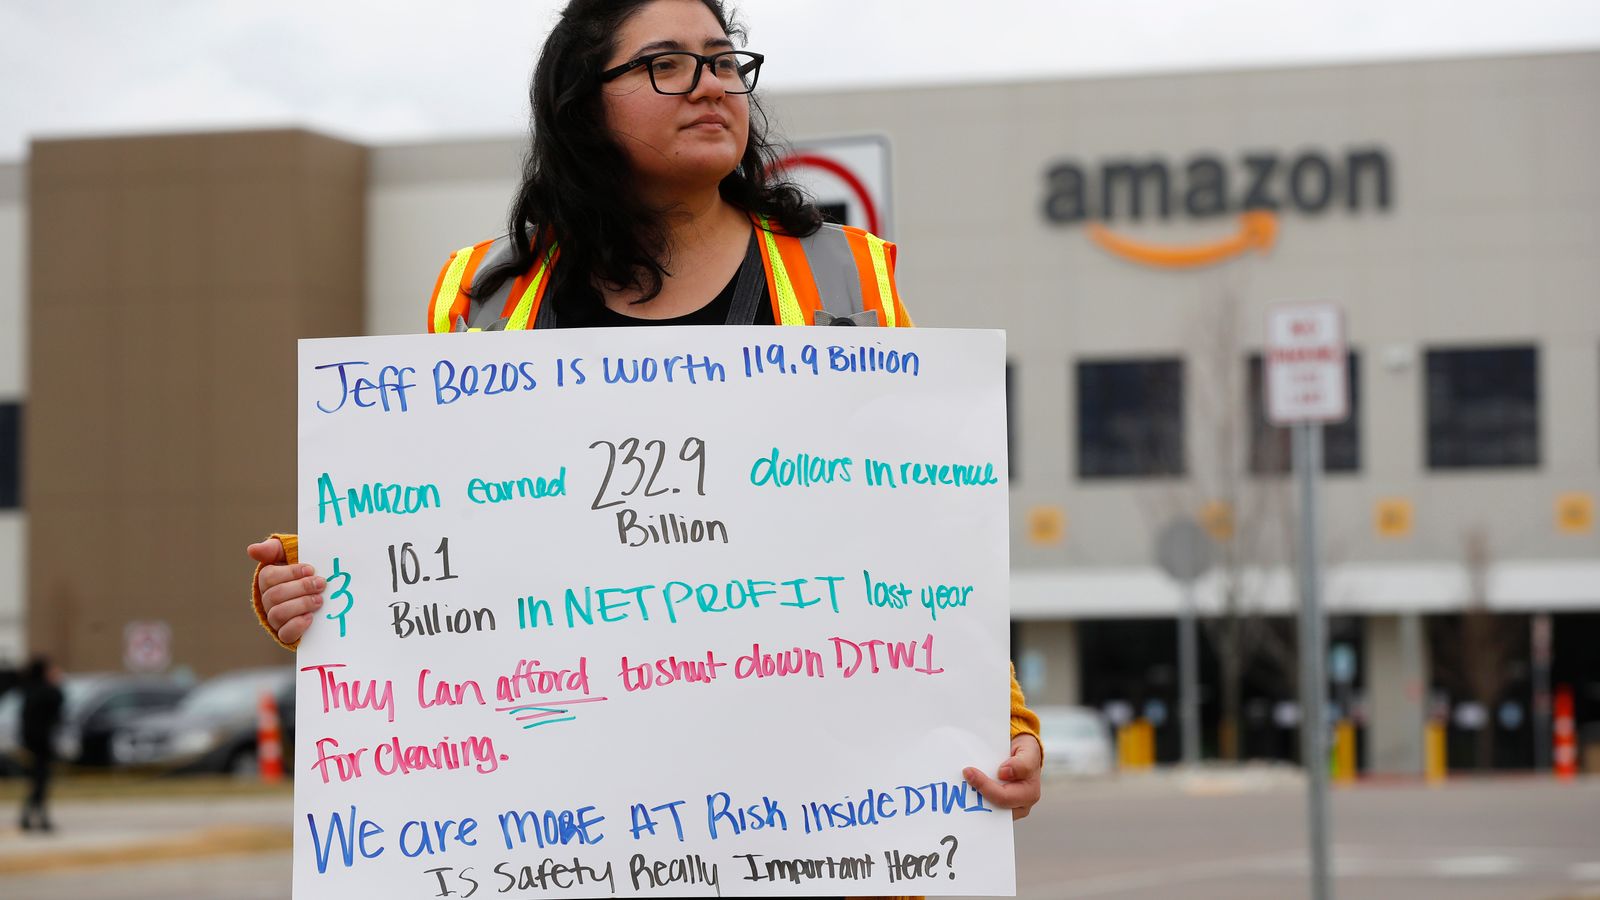 amazon
Jeff Bezos is worth 119.9 Billion
Amazon earned 232.9 Billion dollars in revenue
& 10.1 Billion in NET PROFIT last year
They can afford to shut down DTW1
for cleaning.
We are MORE AT Risk inside DTW1
Is Safety Really Important Here?
NO
PARKING